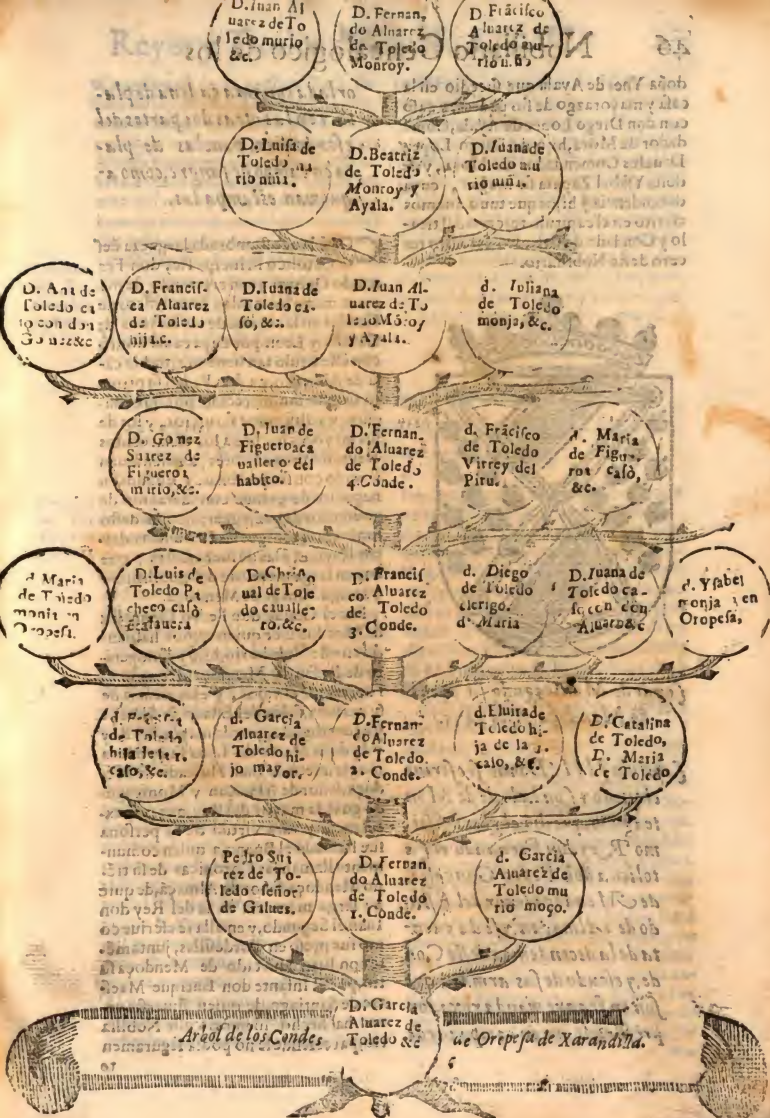 D. Iuan Al
uarez de To
ledo murio
&c.
D. Fernan,
do Aluarez
de Toledo
Monroy.
D. Frãcisco
Aluarez de
Toledo mu
rio niño
D. Luisa de
Toledo mu
rio niña.
D. Beatriz
de Toledo
Monroy y
Ayala.
D. Iuana de
Toledo mu
rio niña.
D. Ana de
Toledo ca
so con don
Gomez &c
D. Francis-
ca Aluarez
de Toledo
hija.c.
D. Iuana de
Toledo ca-
sò, &c.
D. Iuan Al-
uarez de To
ledo Mõroy
y Ayala.
d. Iuliana
de Toledo
monja, &c.
D. Gomez
Suarez de
Figueroa
murio, &c.
D. Iuan de
Figueroa ca
uallero del
habito.
D. Fernan-
do Aluarez
de Toledo
4. Conde.
d. Frãcisco
de Toledo
Virrey del
Piru.
d. Maria
de Figue-
roa casò,
&c.
d. Maria
de Toledo
monja en
Oropesa.
D. Luis de
Toledo Pa
checo casò
D. Christo
ual de Tole
do caualle-
ro, &c.
D. Francis
co Aluarez
de Toledo
3. Conde.
d. Diego
de Toledo
clerigo.
d. Maria
D. Iuana de
Toledo ca-
so, con don
Aluaro &c
d. Ysabel
monja en
Oropesa,
de Toledo
hija de la 1.
caso, &c.
d. Garcia
Aluarez de
Toledo hi-
jo mayor.
D. Fernan-
do Aluarez
de Toledo
2. Conde.
d. Eluira de
Toledo hi-
ja de la 2.
caso, &c.
D. Catalina
de Toledo,
D. Maria
de Toledo
Pedro Sua
rez de To-
ledo señor
de Galues.
D. Fernan
do Aluarez
de Toledo
1. Conde.
d. Garcia
Aluarez de
Toledo mu
rio moço.
D. Garcia
Aluarez de
Toledo &c
Arbol de los Condes
de Oropesa de Xarandilla.